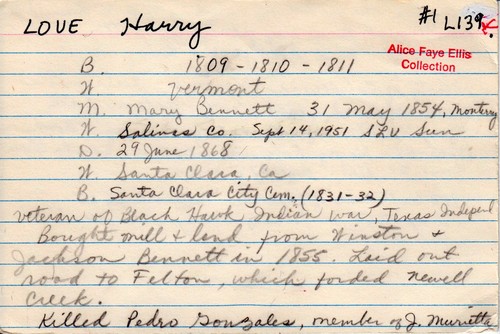 LOVE Harry #1 L139
Alice Faye Ellis
Collection
B. 1809-1810-1811
W. Vermont
M. Mary Bennett 31 May 1854, Monterey
W. Salinas Co. Sept 14, 1951 SLV Sun
D. 29 June 1868
W. Santa Clara, Ca
B. Santa Clara City Cem. (1831-32)
veteran of Black Hawk Indian War, Texas Independ
Bought mill & land from Winston &
Jackson Bennett in 1855. Laid out
road to Felton, which forded Newell
Creek.
Killed Pedro Gonzales, member of J. Murietta